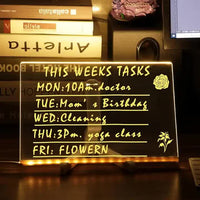 Castellina
Arletta
THIS WEEKS TASKS
MON:10Am.doctor
TUE:Mom's Birthdag
WED:Cleaning
THU:3Pm. yoga class
FRI: FLOWERN